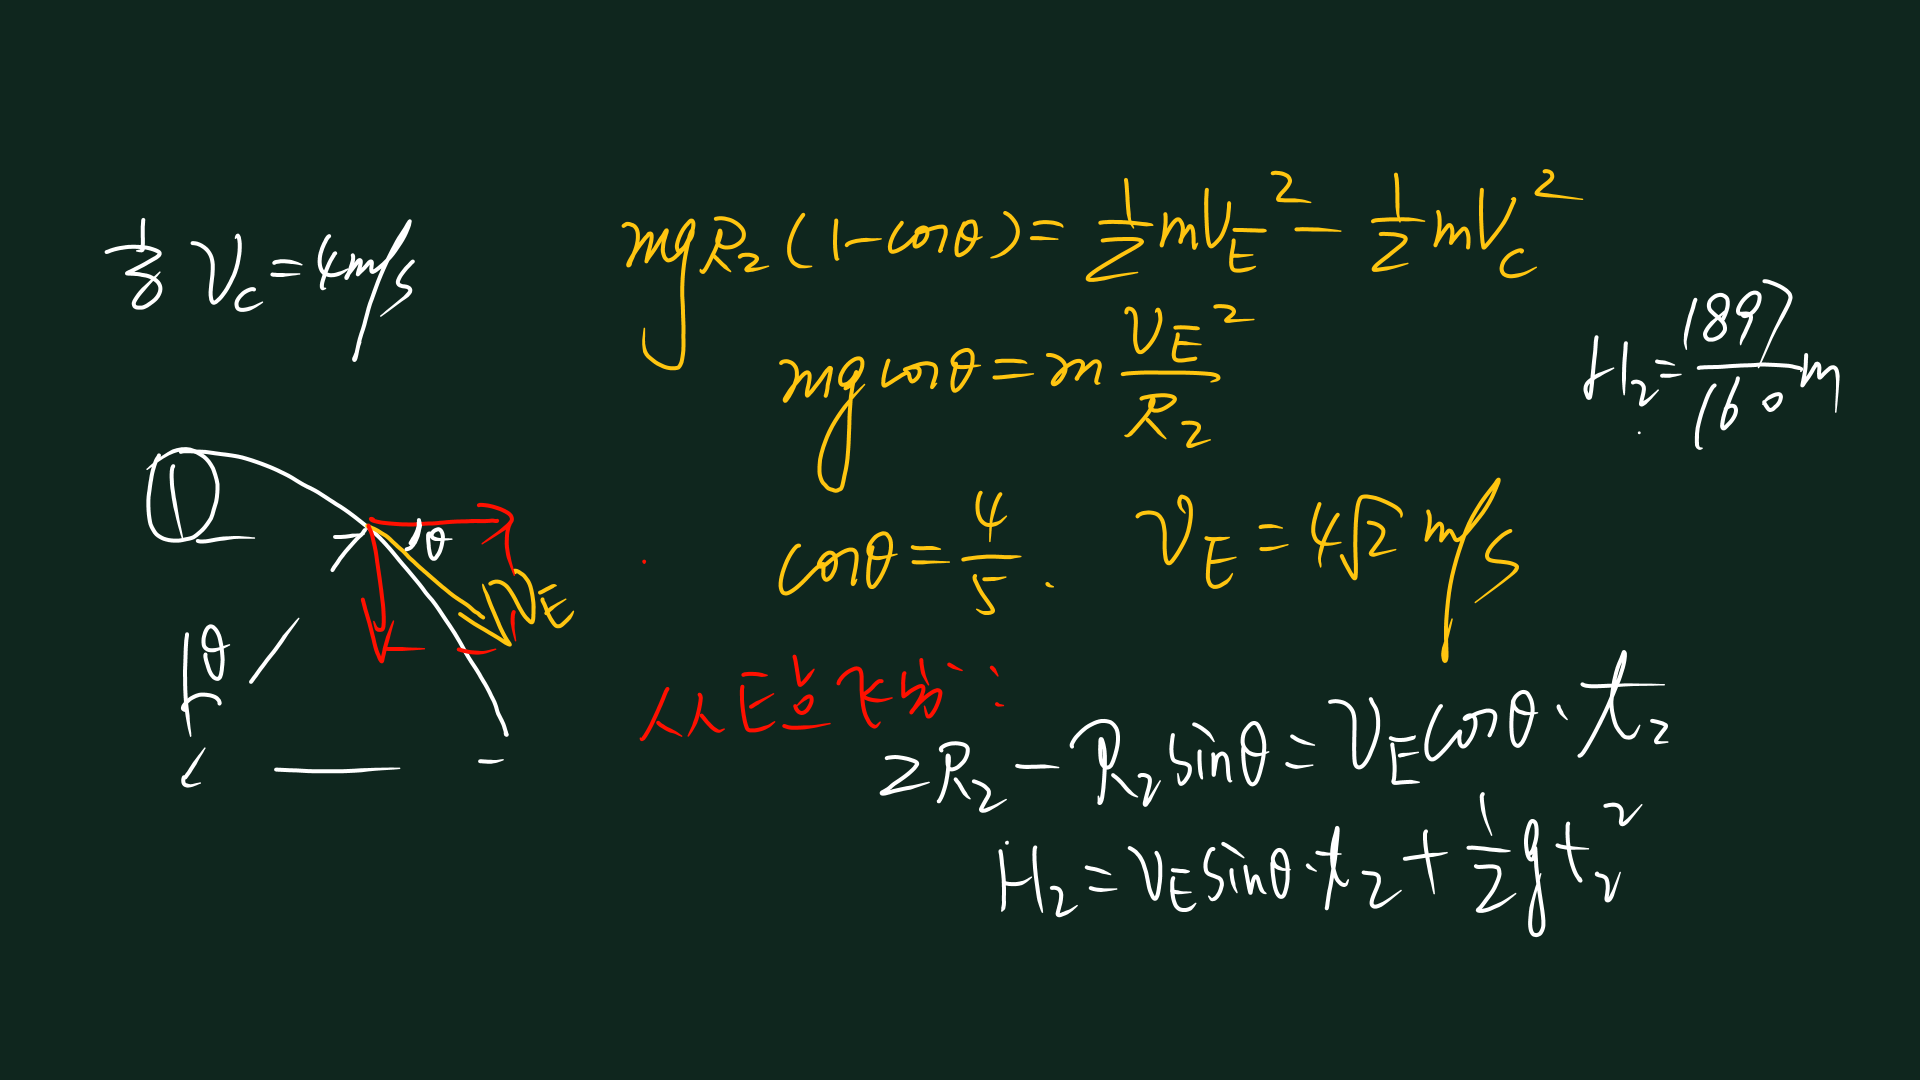 mgR₂(1-cosθ)=½mV_E²-½mV_C²
V_C=4m/s
mgcosθ=m V_E²/R₂
H₂=1897/160 m
cosθ=4/5. V_E=4√2 m/s
θ
V_E
θ
从E点飞出:
2R₂-R₂sinθ=V_Ecosθ·t₂
H₂=V_Esinθ·t₂+½gt₂²